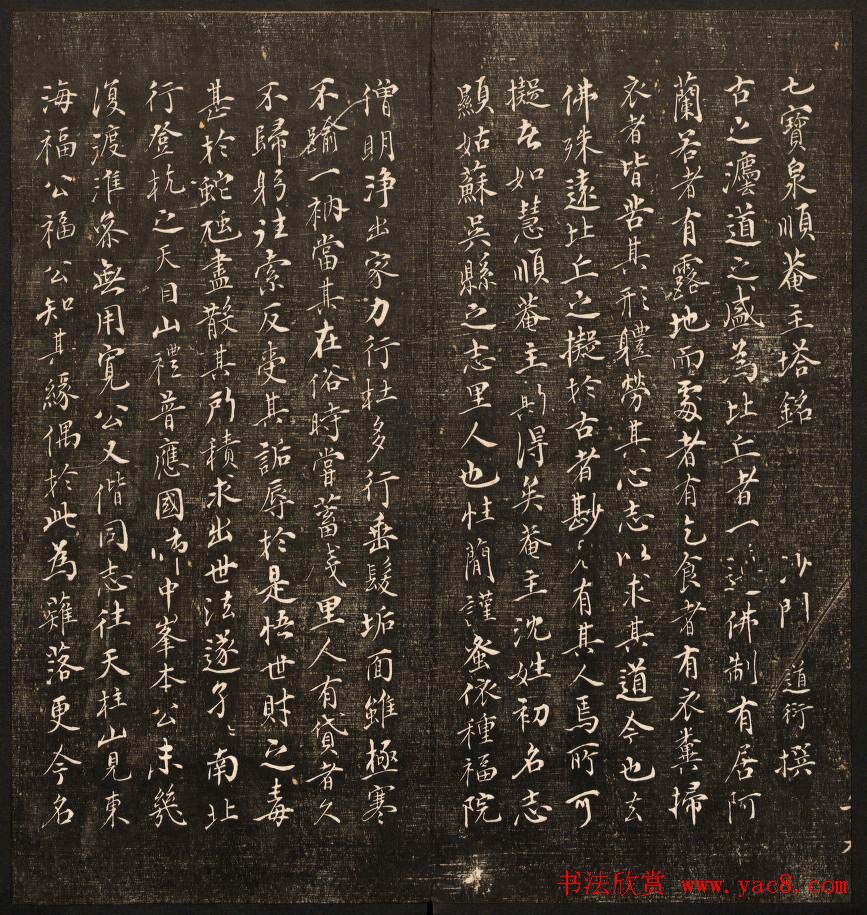 七寶泉順菴主塔銘 沙門 道衍撰
古之瀌道之盛為比丘者一遵佛制有居阿
蘭若者有露地而處者有乞食者有衣糞掃
衣者皆苦其形體勞其心志以求其道今也去
佛殊遠比丘之擬於古者尠見有其人焉所可
擬者如慧順菴主斯得矣菴主沈姓初名志
顯姑蘇吳縣之志里人也性簡謹蚤依種福院
僧明淨出家力行杜多行垂髮垢面雖極寒
不踰一衲當其在俗時嘗蓄浅里人有貸者久
不歸躬往索反受其詬辱於是悟世財之毒
甚於蛇虺盡散其所積求出世法遂孑〻南北
行登杭之天目山禮普應國師中峯本公未幾
復渡淮參無用寬公又偕同志往天柱山見東
海福公福公知其緣偶於此為薙落更今名
书法欣赏 www.yac8.com